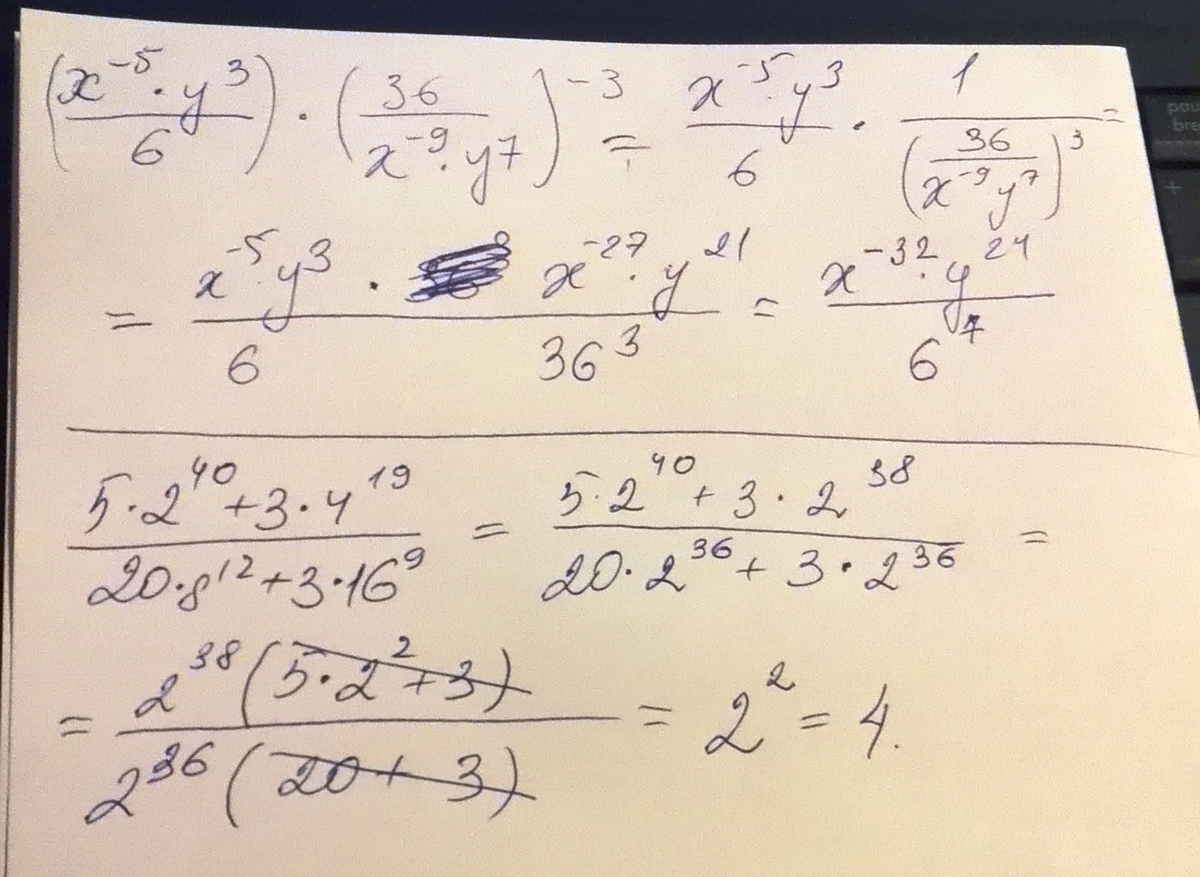 (x⁻⁵·y³/6)·(36/(x⁻⁹·y⁷))⁻³ = x⁻⁵·y³/6 · 1/(36/(x⁻⁹y⁷))³ =
= x⁻⁵·y³ · x⁻²⁷·y²¹/(6 36³) = x⁻³²·y²⁴/6⁷
(5·2⁴⁰+3·4¹⁹)/(20·8¹²+3·16⁹) = (5·2⁴⁰+3·2³⁸)/(20·2³⁶+3·2³⁶) =
= 2³⁸(5·2²+3)/(2³⁶(20+3)) = 2² = 4.